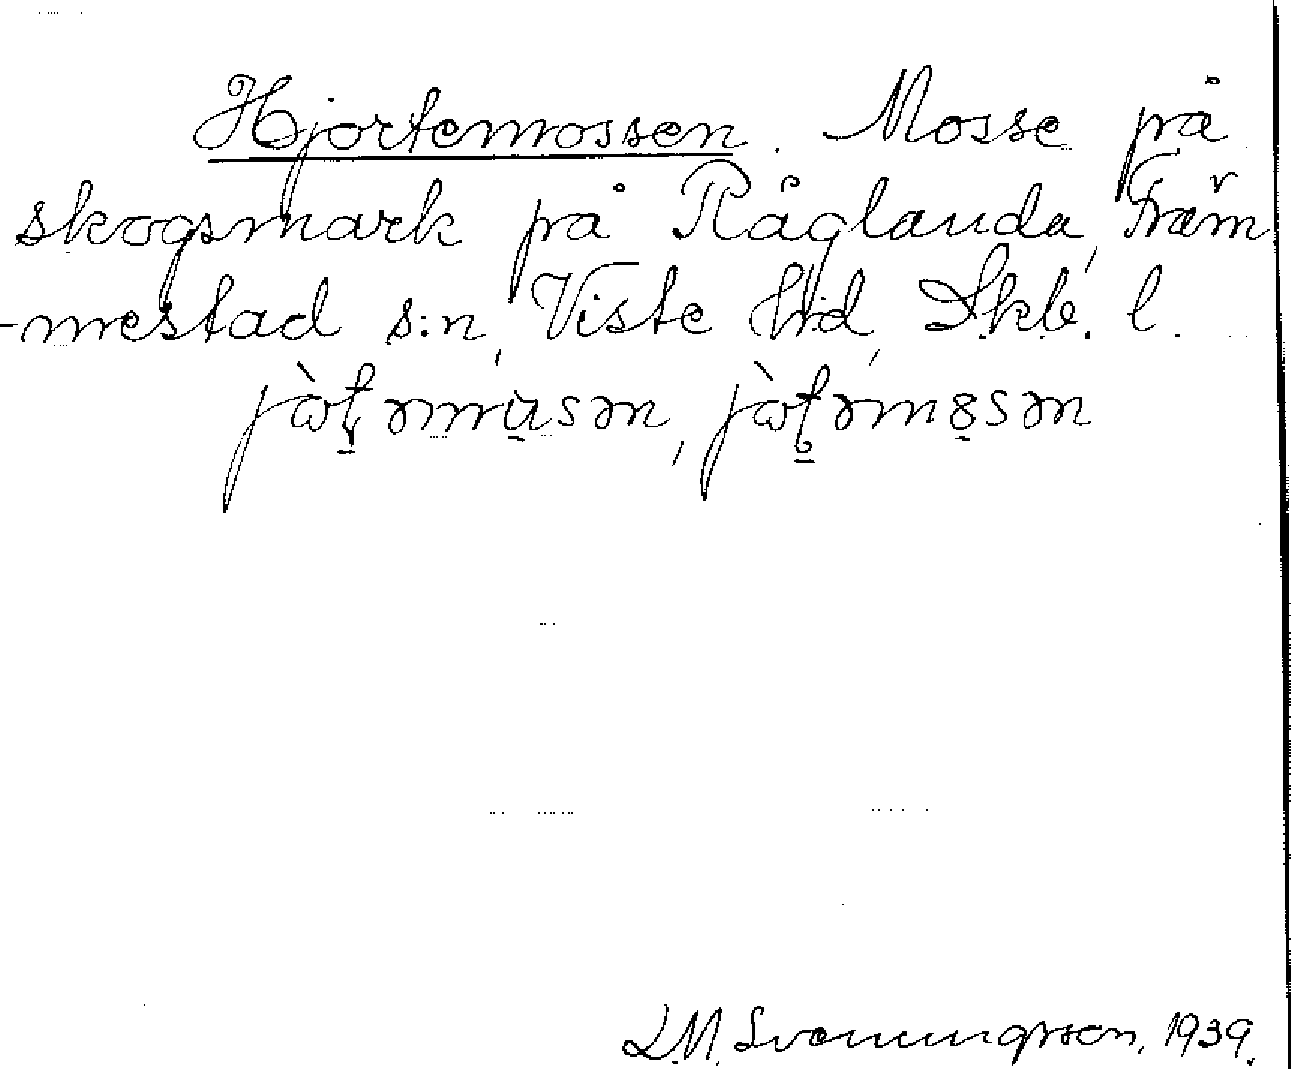 Hjortemossen. Mosse på
skogsmark på Råglanda, Träm
-mestad s:n, Viste hd, Skb. l.
jòtəmusən, jòtəmɵsən
L.M. Svenungsson, 1939.